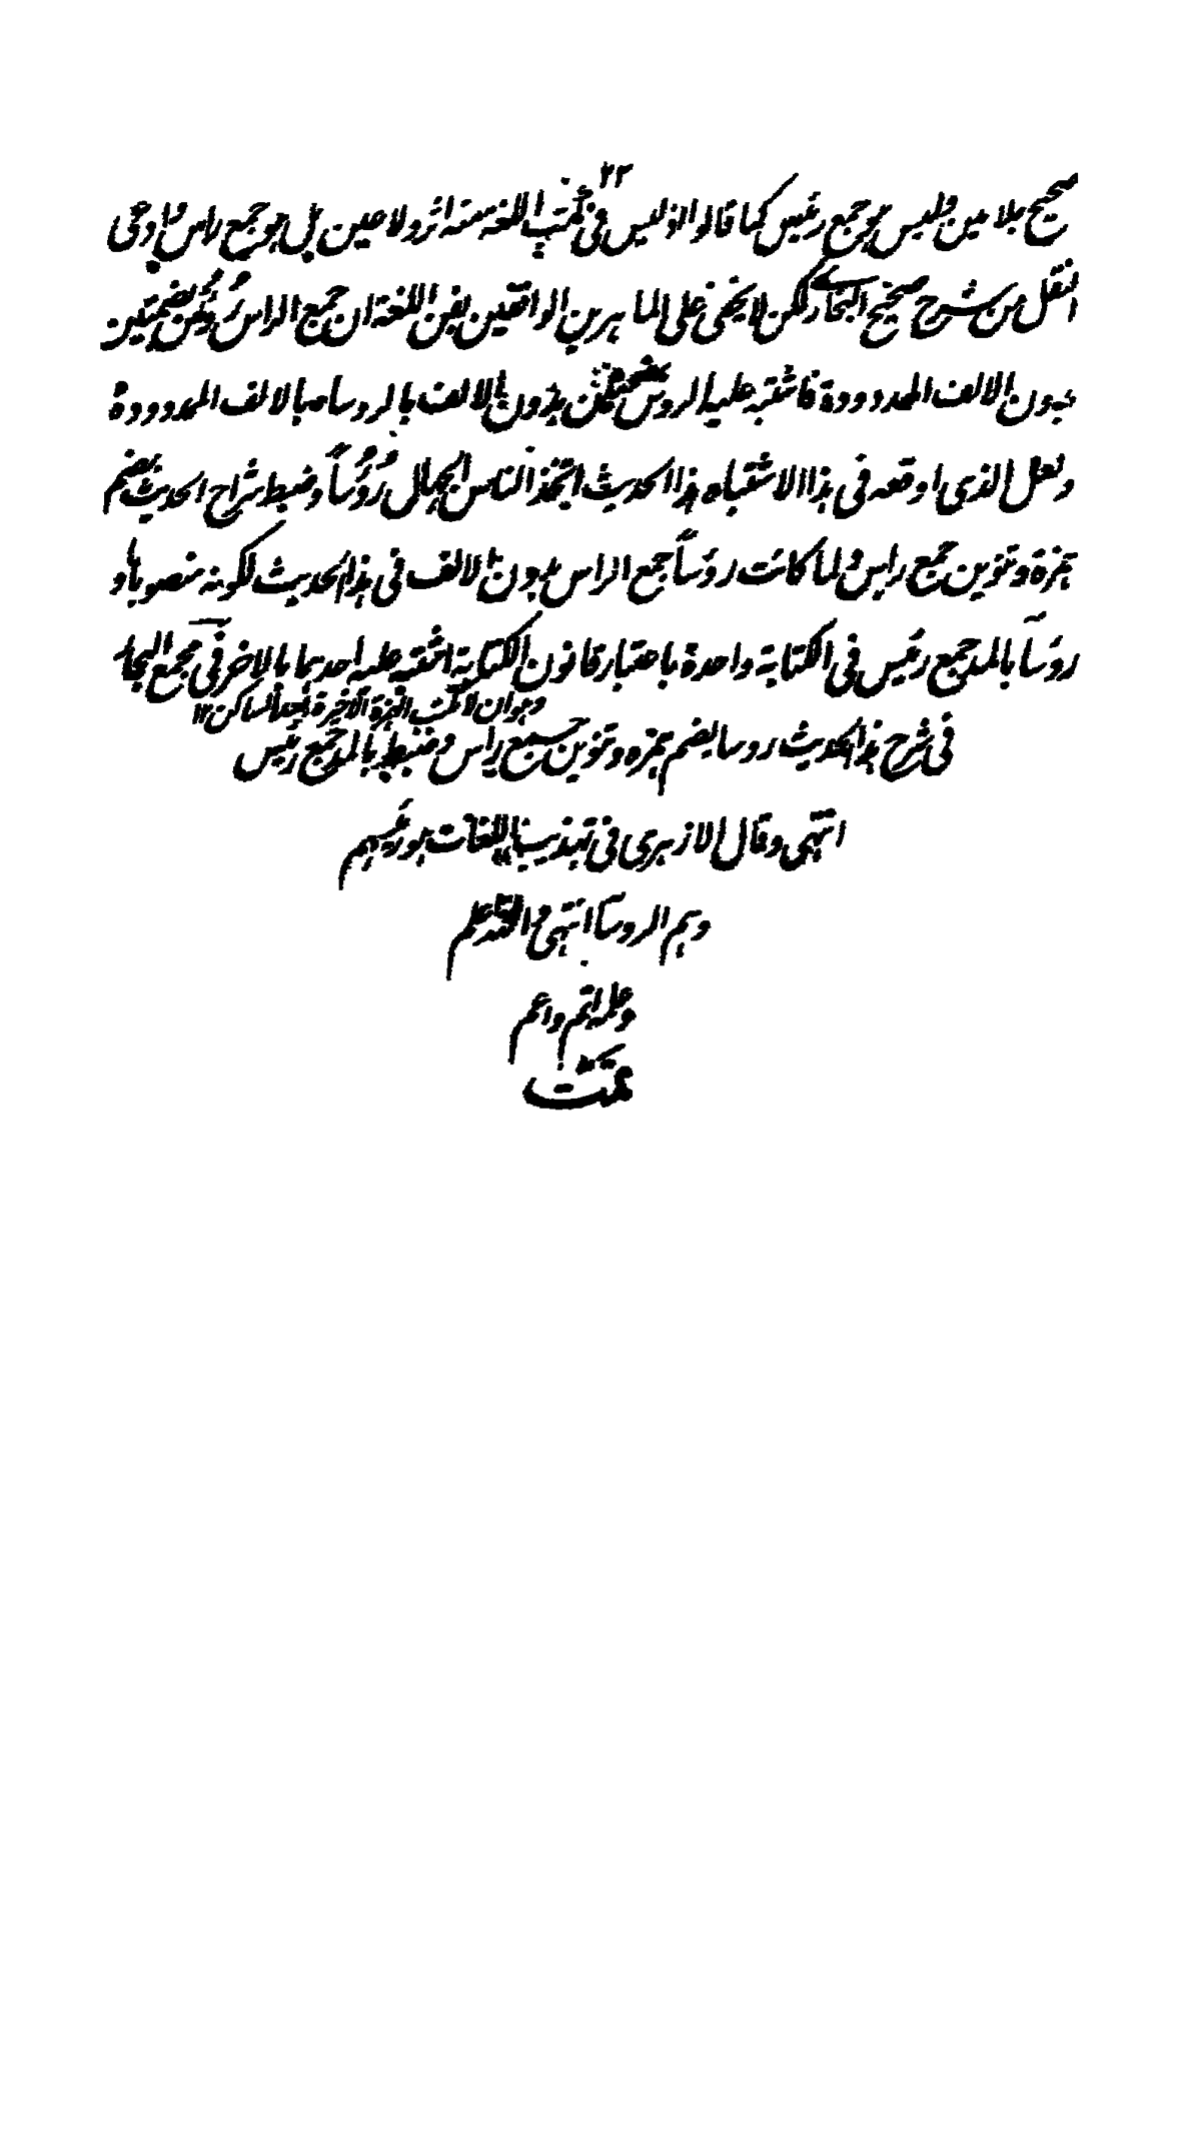 ٢٢
صحيح بلا مين وليس هو جمع رئيس كما قالوا اذ ليس فى كتب اللغة منه اثر ولا عين بل هو جمع راس وادعى
النقل من شرح صحيح البخارى لكن لا يخفى على الماهرين الواقفين بفن اللغة ان جمع الراس رؤس بضمتين
بدون الالف الممدودة فاشتبه عليه الروس بضمتين بدون الالف بالروساء بالالف الممدودة
ولعل الذى اوقعه فى هذا الاشتباه هذا الحديث اتخذ الناس الجهال رُؤُسًا وضبط شراح الحديث بضم
همزة وتنوين جمع راس ولما كانت روسًا جمع الراس بدون الالف فى هذا الحديث لكونه منصوبا و
روسَآ بالمد جمع رئيس فى الكتابة واحدة باعتبار قانون الكتابة اشتبه عليه احدهما بالاخر فى مجمع البحار
وهو ان لا تكتب الهمزة الاخيرة بعد الساكن ١٢
فى شرح هذا الحديث روسا بضم همزه وتنوين جمع راس وضبط بالمد جمع رئيس
انتهى وقال الازهرى فى تهذيب اللغات هو رئيسهم
وهم الروسآ انتهى والله اعلم
وعلمه اتم واعم
تمت